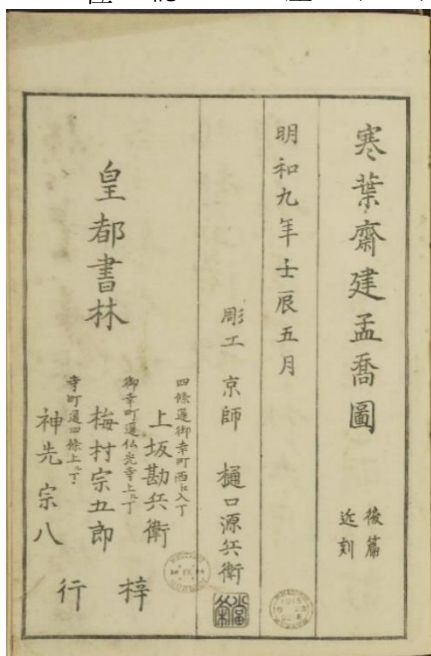 寒葉齋建孟喬圖
後篇
近刻
明和九年壬辰五月
彫工 京師 樋口源兵衛
皇都書林
四條通御幸町西江入丁
上坂勘兵衛
御幸町通仏光寺上ル丁
梅村宗五郎
寺町通四條上ル丁
神先宗八
梓
行